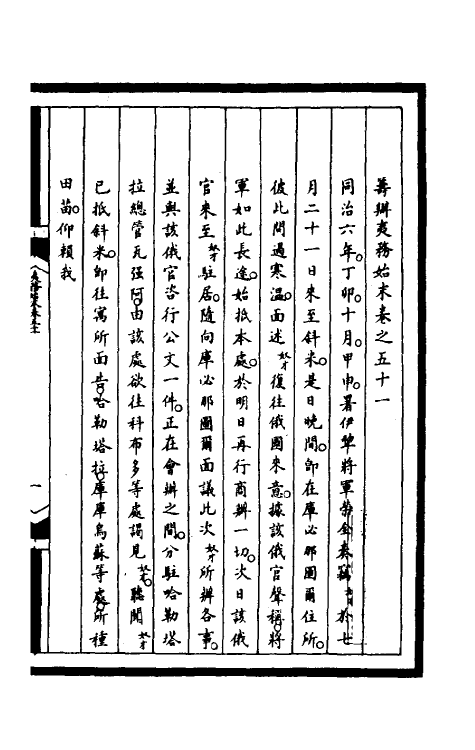 籌辦夷務始末卷之五十一
同治六年。丁卯。十月。甲申。署伊犂將軍榮全奏竊奴才於七
月二十一日來至斜米。是日晚間。卽在庫必那圖爾住所。
彼此問過寒溫。面述奴才復往俄國來意。據該俄官聲稱。將
軍如此長途。始抵本處。於明日再行商辦一切。次日該俄
官來至奴才駐居。隨向庫必那圖爾面議此次奴才所辦各事。
並與該俄官咨行公文一件。正在會辦之間。分駐哈勒塔
拉總管瓦强阿。由該處欲往科布多等處謁見奴才。聽聞奴才
已抵斜米。卽往寓所面告。哈勒塔拉。庫庫烏蘇等處。所種
田苗。仰賴我
一